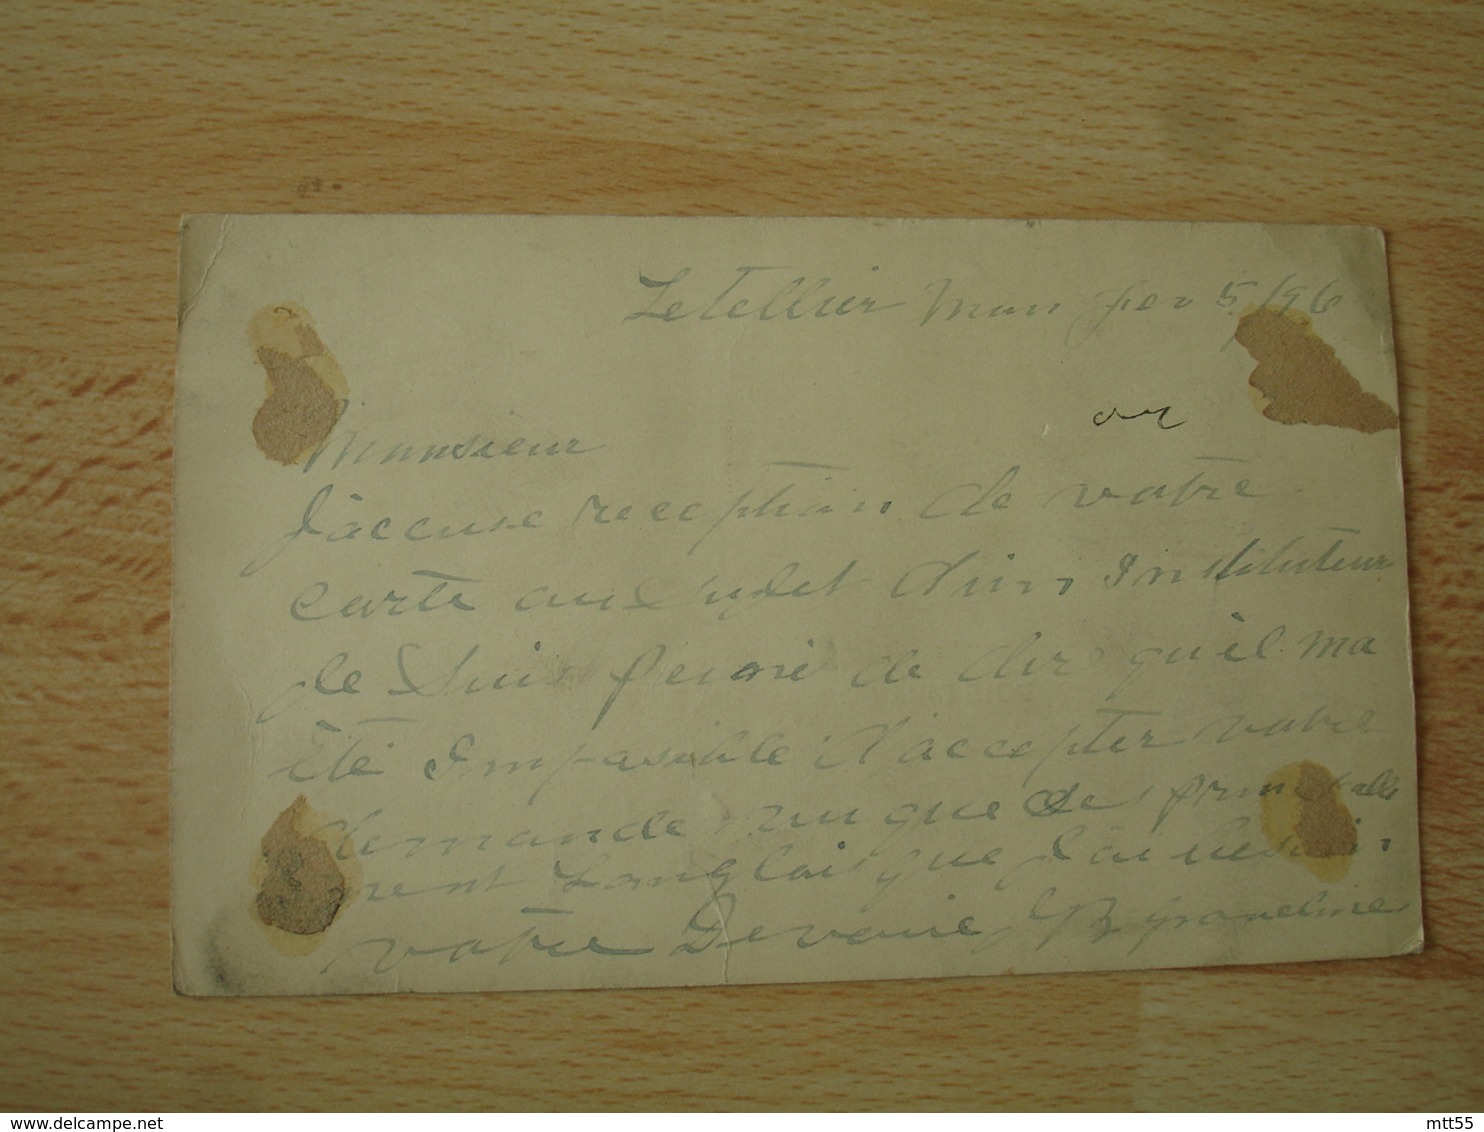 Letellier Man fev 5/96
Monsieur
J'accuse reception de votre
carte au Sujet d'un Instituteur
Je Suis peiné de dire qu'il ma
Été Impossible d'accepter votre
demande vu que
Langlais que J'ai besoin.
votre Devoué J B
mtt55